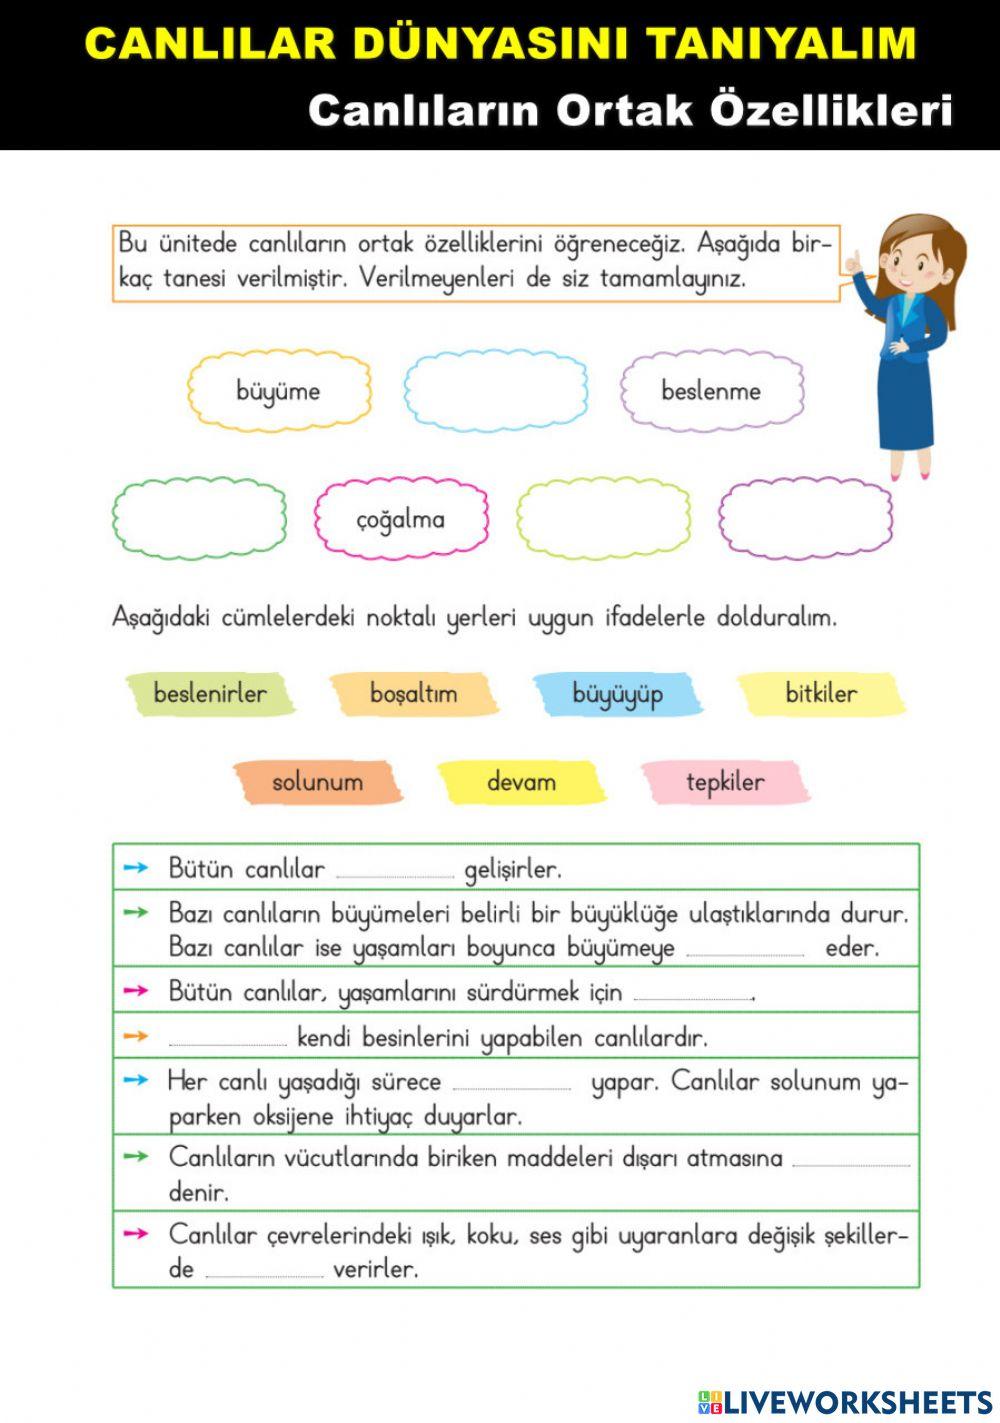 CANLILAR DÜNYASINI TANIYALIM
Canlıların Ortak Özellikleri
Bu ünitede canlıların ortak özelliklerini öğreneceğiz. Aşağıda bir-
kaç tanesi verilmiştir. Verilmeyenleri de siz tamamlayınız.
büyüme
beslenme
çoğalma
Aşağıdaki cümlelerdeki noktalı yerleri uygun ifadelerle dolduralım.
beslenirler boşaltım büyüyüp bitkiler
solunum devam tepkiler
Bütün canlılar ............ gelişirler.
Bazı canlıların büyümeleri belirli bir büyüklüğe ulaştıklarında durur.
Bazı canlılar ise yaşamları boyunca büyümeye ............ eder.
Bütün canlılar, yaşamlarını sürdürmek için .............
............ kendi besinlerini yapabilen canlılardır.
Her canlı yaşadığı sürece ............ yapar. Canlılar solunum ya-
parken oksijene ihtiyaç duyarlar.
Canlıların vücutlarında biriken maddeleri dışarı atmasına ............
denir.
Canlılar çevrelerindeki ışık, koku, ses gibi uyaranlara değişik şekiller-
de ............ verirler.
LIVE LIVEWORKSHEETS